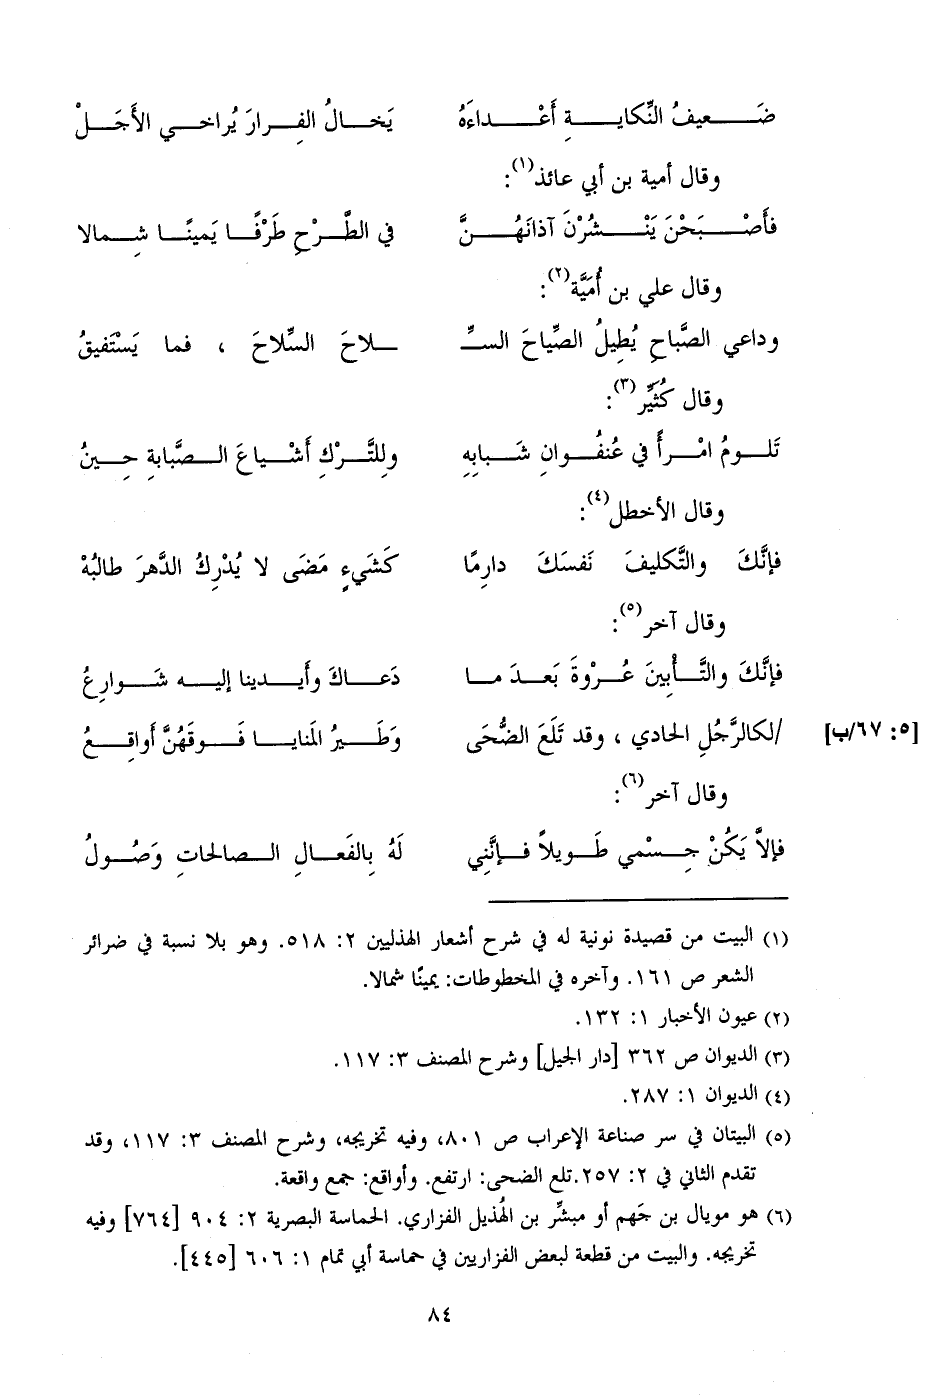 ضَعيفُ النِّكايةِ أَعْداءَهُ يَخالُ الفِرارَ يُراخي الأَجَلْ
وقال أمية بن أبي عائذ(١):
فأَصْبَحْنَ يَنْشُرْنَ آذانَهُنَّ في الطَّرْحِ طَرْفًا يَمينًا شِمالا
وقال علي بن أُمَيَّة(٢):
وداعي الصَّباحِ يُطِيلُ الصِّياحَ السـِّ ـلاحَ السِّلاحَ ، فما يَسْتَفيقُ
وقال كُثَيِّر(٣):
تَلومُ امْرأً في عُنفُوانِ شَبابِهِ وللتَّرْكِ أَشْياعَ الصَّبابةِ حِينُ
وقال الأخطل(٤):
فإنَّكَ والتَّكليفَ نَفسَكَ دارِمًا كَشَيءٍ مَضَى لا يُدْرِكُ الدَّهرَ طالبُهْ
وقال آخر(٥):
فإنَّكَ والتَّأبينَ عُرْوةَ بَعدَ ما دَعاكَ وأَيدينا إليه شَوارعُ
[٥: ٦٧/ب] /لكالرَّجُلِ الحادي ، وقد تَلَعَ الضُّحَى وَطَيرُ المَنايا فَوقَهُنَّ أَواقِعُ
وقال آخر(٦):
فإلاَّ يَكُنْ جِسْمي طَويلاً فإنَّني لَهُ بِالفَعالِ الصالحاتِ وَصُولُ
(١) البيت من قصيدة نونية له في شرح أشعار الهذليين ٢: ٥١٨. وهو بلا نسبة في ضرائر
الشعر ص ١٦١. وآخره في المخطوطات: يمينًا شمالا.
(٢) عيون الأخبار ١: ١٣٢.
(٣) الديوان ص ٣٦٢ [دار الجيل] وشرح المصنف ٣: ١١٧.
(٤) الديوان ١: ٢٨٧.
(٥) البيتان في سر صناعة الإعراب ص ٨٠١، وفيه تخريجه، وشرح المصنف ٣: ١١٧، وقد
تقدم الثاني في ٢: ٢٥٧.تلع الضحى: ارتفع. وأواقع: جمع واقعة.
(٦) هو مويال بن جَهم أو مبشِّر بن الهُذيل الفزاري. الحماسة البصرية ٢: ٩٠٤ [٧٦٤] وفيه
تخريجه. والبيت من قطعة لبعض الفزاريين في حماسة أبي تمام ١: ٦٠٦ [٤٤٥].
٨٤